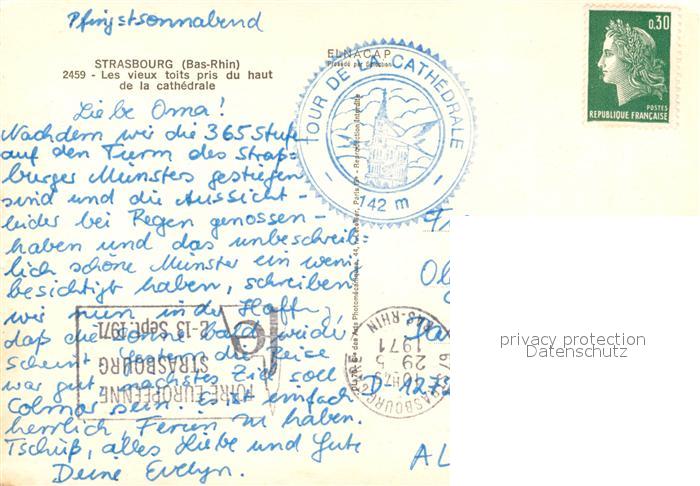 Pfingstsonnabend
STRASBOURG (Bas-Rhin)
2459 - Les vieux toits pris du haut
de la cathédrale
ELNACAP
TOUR DE LA CATHÉDRALE
142 m
0,30
POSTES
REPUBLIQUE FRANÇAISE
Liebe Oma!
Nachdem wir die 365 Stufe
auf den Turm des Straß=
burger Münsters gestiegen
sind und die Aussicht -
leider bei Regen genossen -
haben und das unbeschreib-
lich schöne Münster ein weni
besichtigt haben, schreiben
wir nun in der Hoffn
daß die Sonne bald wieder
scheint. Gestern die Reise
war gut, nächstes Ziel soll
Colmar sein. Es ist einfach
herrlich Ferien zu haben.
Tschüß, alles Liebe und Gute
Deine Evelyn.
FOIRE EUROPEENNE
STRASBOURG
2-13 Sept. 1971
STRASBOURG
29 5
1971
BAS-RHIN
D-
AL
privacy protection
Datenschutz